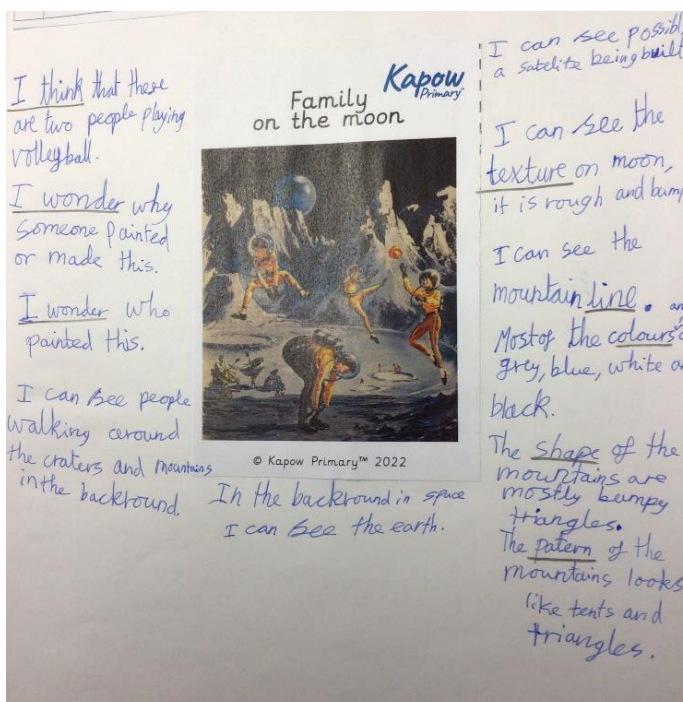 I think that there
are two people playing
volleyball.
I wonder why
someone painted
or made this.
I wonder who
painted this.
I can see people
walking around
the craters and mountains
in the backround.
Kapow
Primary
Family
on the moon
© Kapow Primary™ 2022
In the backround in space
I can see the earth.
I can see possibl
a satelite being built
I can see the
texture on moon,
it is rough and bump
I can see the
mountain line.
Most of the colours
grey, blue, white
black.
The shape of the
mountains are
mostly bumpy
triangles.
The patern of the
mountains looks
like tents and
triangles.